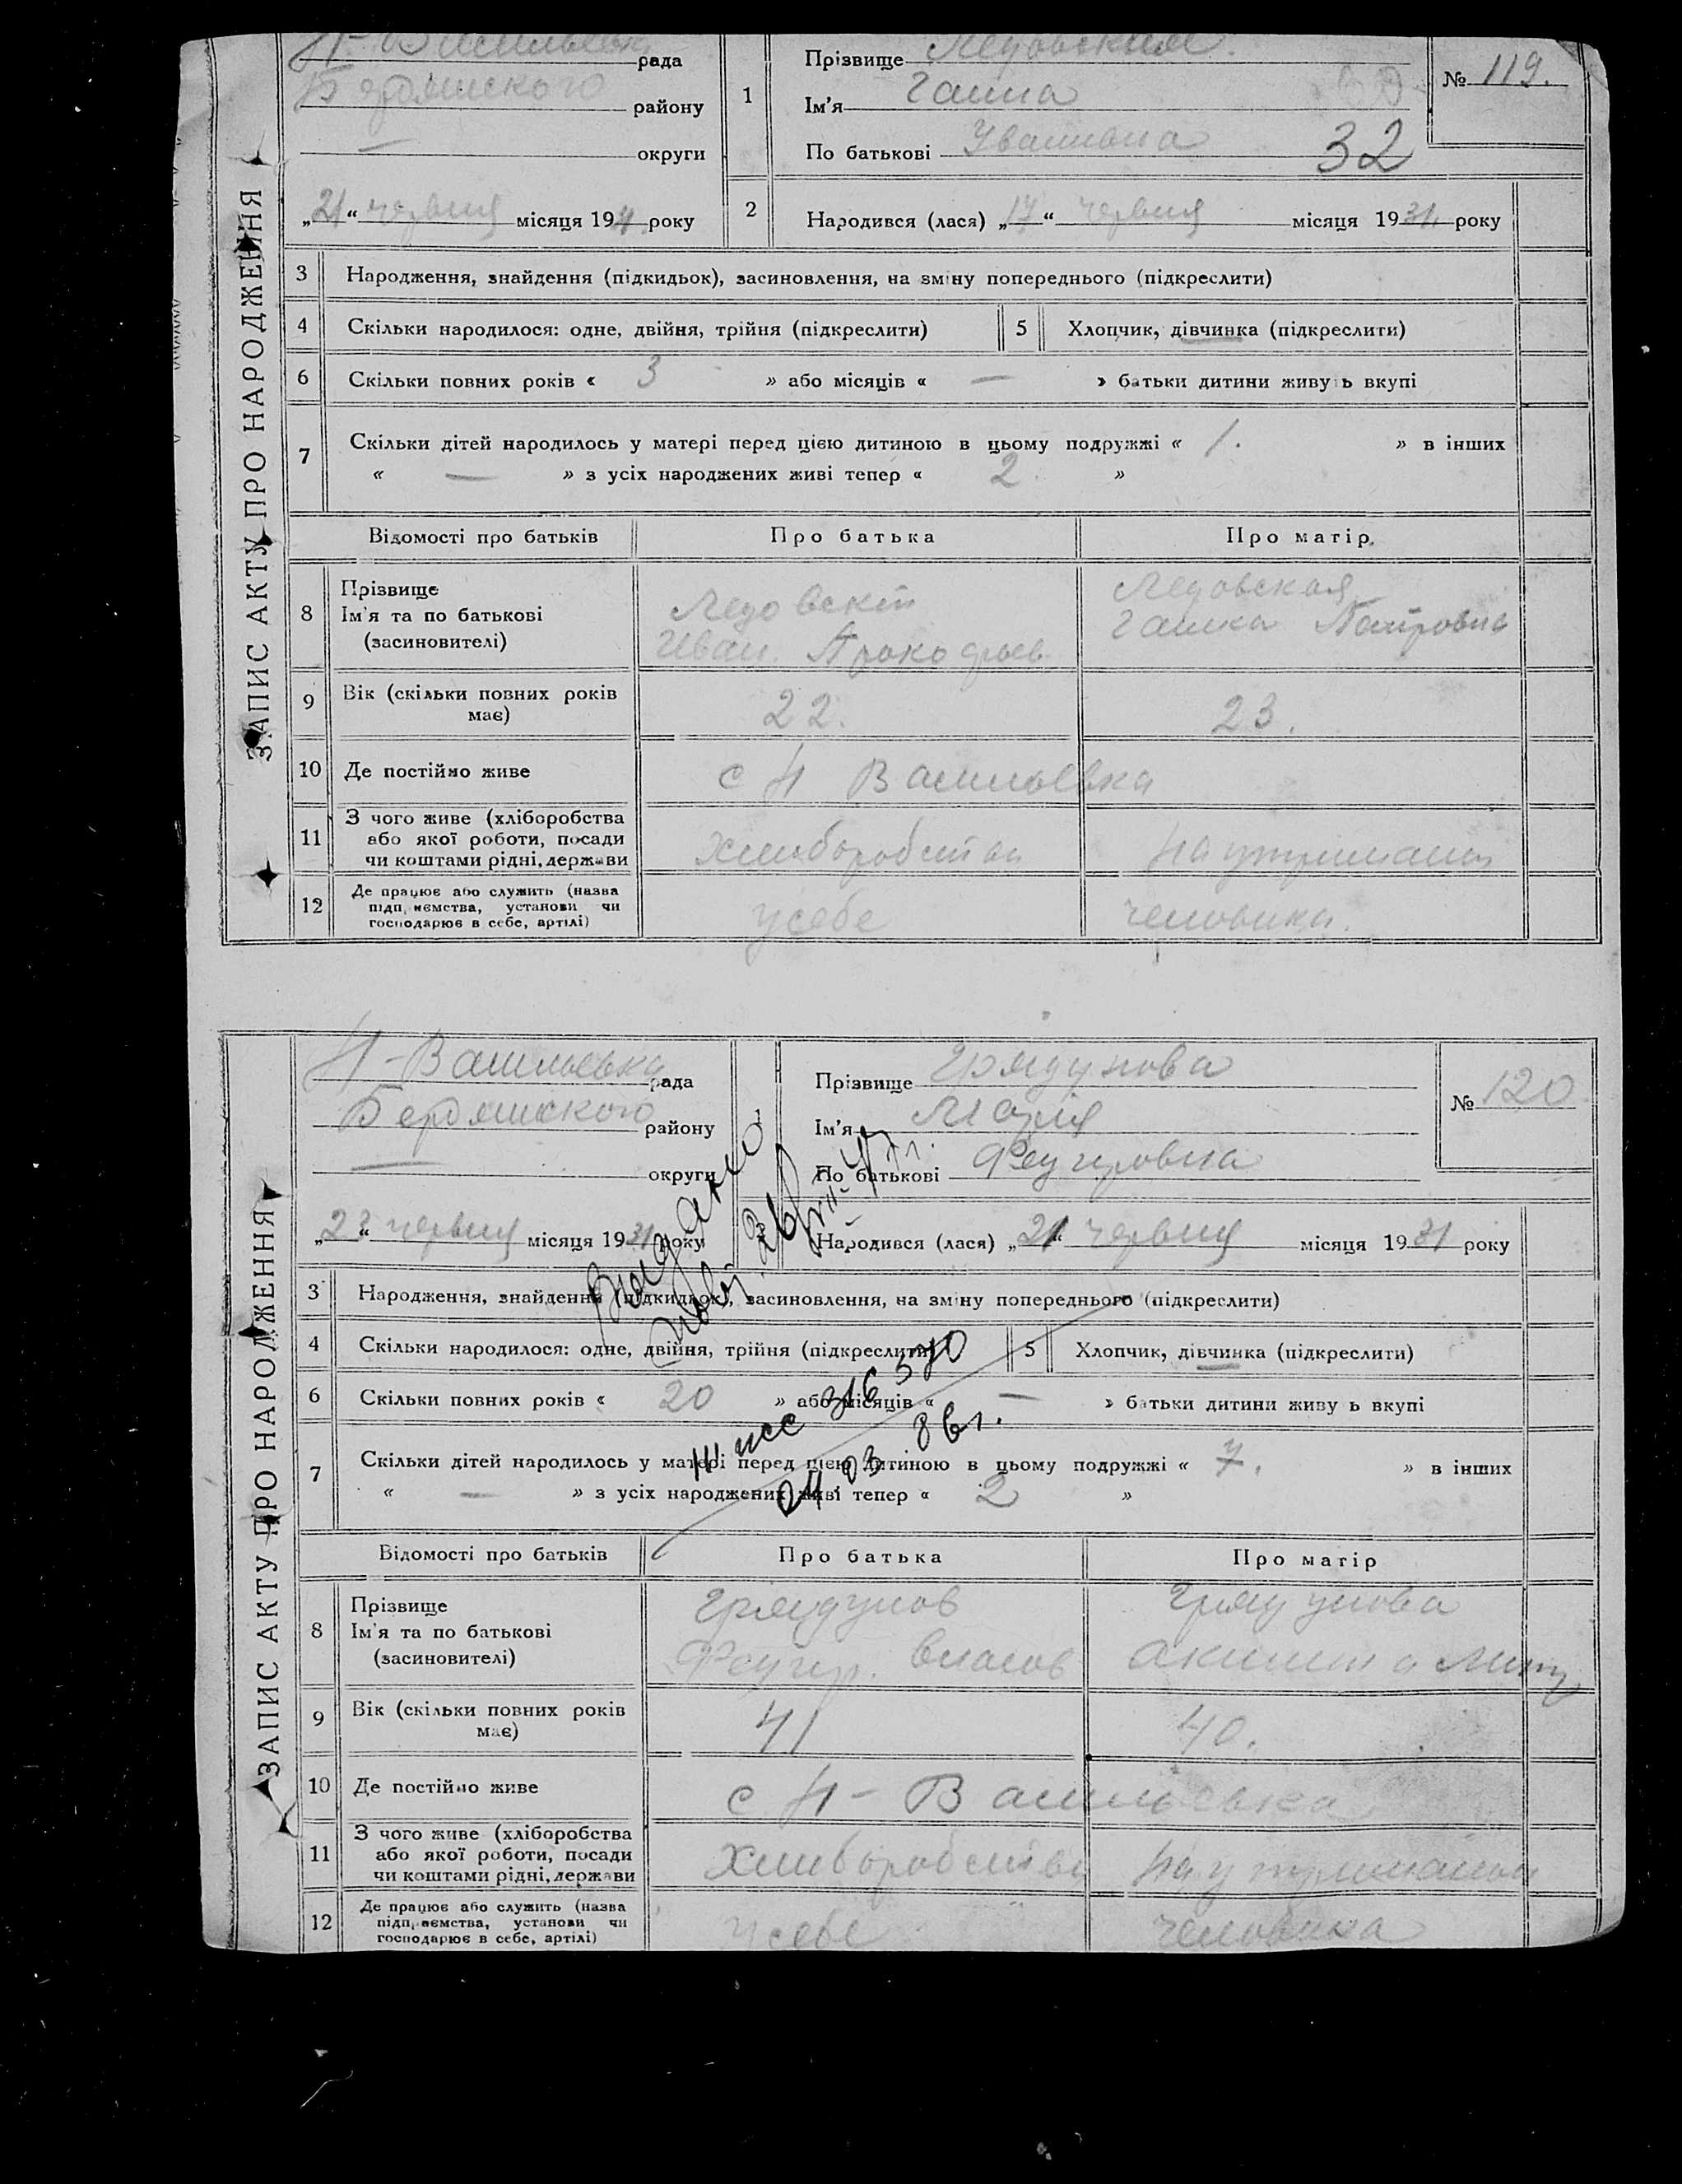 Н-Васильевка рада
Бердянского району
округи
„21“ червня місяця 1931 року
1
Прізвище Ледовская
Ім'я Ганна
По батькові Ивановна
№ 119.
32
2
Народився (лася) „17“ червня місяця 1931 року
ЗАПИС АКТУ ПРО НАРОДЖЕННЯ
3 Народження, знайдення (підкидьок), засиновлення, на зміну попереднього (підкреслити)
4 Скільки народилося: одне, двійня, трійня (підкреслити) 5 Хлопчик, дівчинка (підкреслити)
6 Скільки повних років « 3 » або місяців « — » батьки дитини живу ь вкупі
7 Скільки дітей народилось у матері перед цією дитиною в цьому подружжі « 1. » в інших
« — » з усіх народжених живі тепер « 2. »
Відомості про батьків Про батька Про матір
8 Прізвище
Ім'я та по батькові
(засновителі)
Ледовский
Иван
Ледовская
Ганна Петровна
9 Вік (скільки повних років
має)
22. 23.
10 Де постійно живе с Н Васильевка
11 З чого живе (хліборобства
або якої роботи, посади
чи коштами рідні, держави
Хлиборобства
на утримании
12 Де працює або служить (назва
підприємства, установи чи
господарює в себе, артілі)
у себе
человика.
Н-Васильевка рада
Бердянского району
— округи
„23“ червня місяця 1931 року
1
Прізвище Грядунова
Ім'я Марія
По батькові
№ 120
Народився (лася) „21“ червня місяця 1931 року
ЗАПИС АКТУ ПРО НАРОДЖЕННЯ
3 Народження, знайдення (підкидьок), засиновлення, на зміну попереднього (підкреслити)
4 Скільки народилося: одне, двійня, трійня (підкреслити) 5 Хлопчик, дівчинка (підкреслити)
6 Скільки повних років « 20 » або місяців « — » батьки дитини живу ь вкупі
7 Скільки дітей народилось у матері перед цією дитиною в цьому подружжі « 7. » в інших
« — » з усіх народжених живі тепер « 2 »
316570
24.03 86г.
Відомості про батьків Про батька Про матір
8 Прізвище
Ім'я та по батькові
(засиновителі)
Грядунов
Власов
Грядунова
9 Вік (скільки повних років
має)
41 40.
10 Де постійно живе с Н-Васильевка
11 З чого живе (хліборобства
або якої роботи, посади
чи коштами рідні, держави
Хлиборобства
на утримании
12 Де працює або служить (назва
підприємства, установи чи
господарює в себе, артілі)
у себе
человика